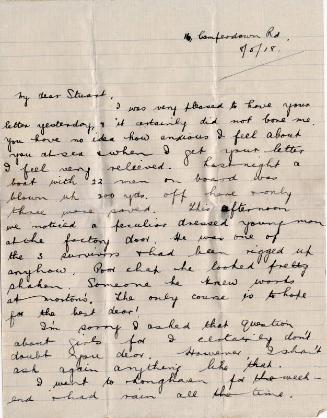 Camperdown Rd.
8/5/18.
My dear Stuart,
I was very pleased to have your
letter yesterday, & it certainly did not bore me.
You have no idea how anxious I feel about
you at sea & when I get your letter
I feel very relieved. Last night a
boat with 22 men on board was
blown up 300 yds. off here & only
three were saved. This afternoon
we noticed a peculiar dressed young man
at the factory door. He was one of
the 3 survivors & had been rigged up
anyhow. Poor chap he looked pretty
shaken. Someone he knew works
at Morton's. The only course is to hope
for the best dear!
I'm sorry I asked that question
about girls for I certainly don't
doubt you dear. However, I shan't
ask again anything like that.
I went to for the week-
end & had rain all the time.